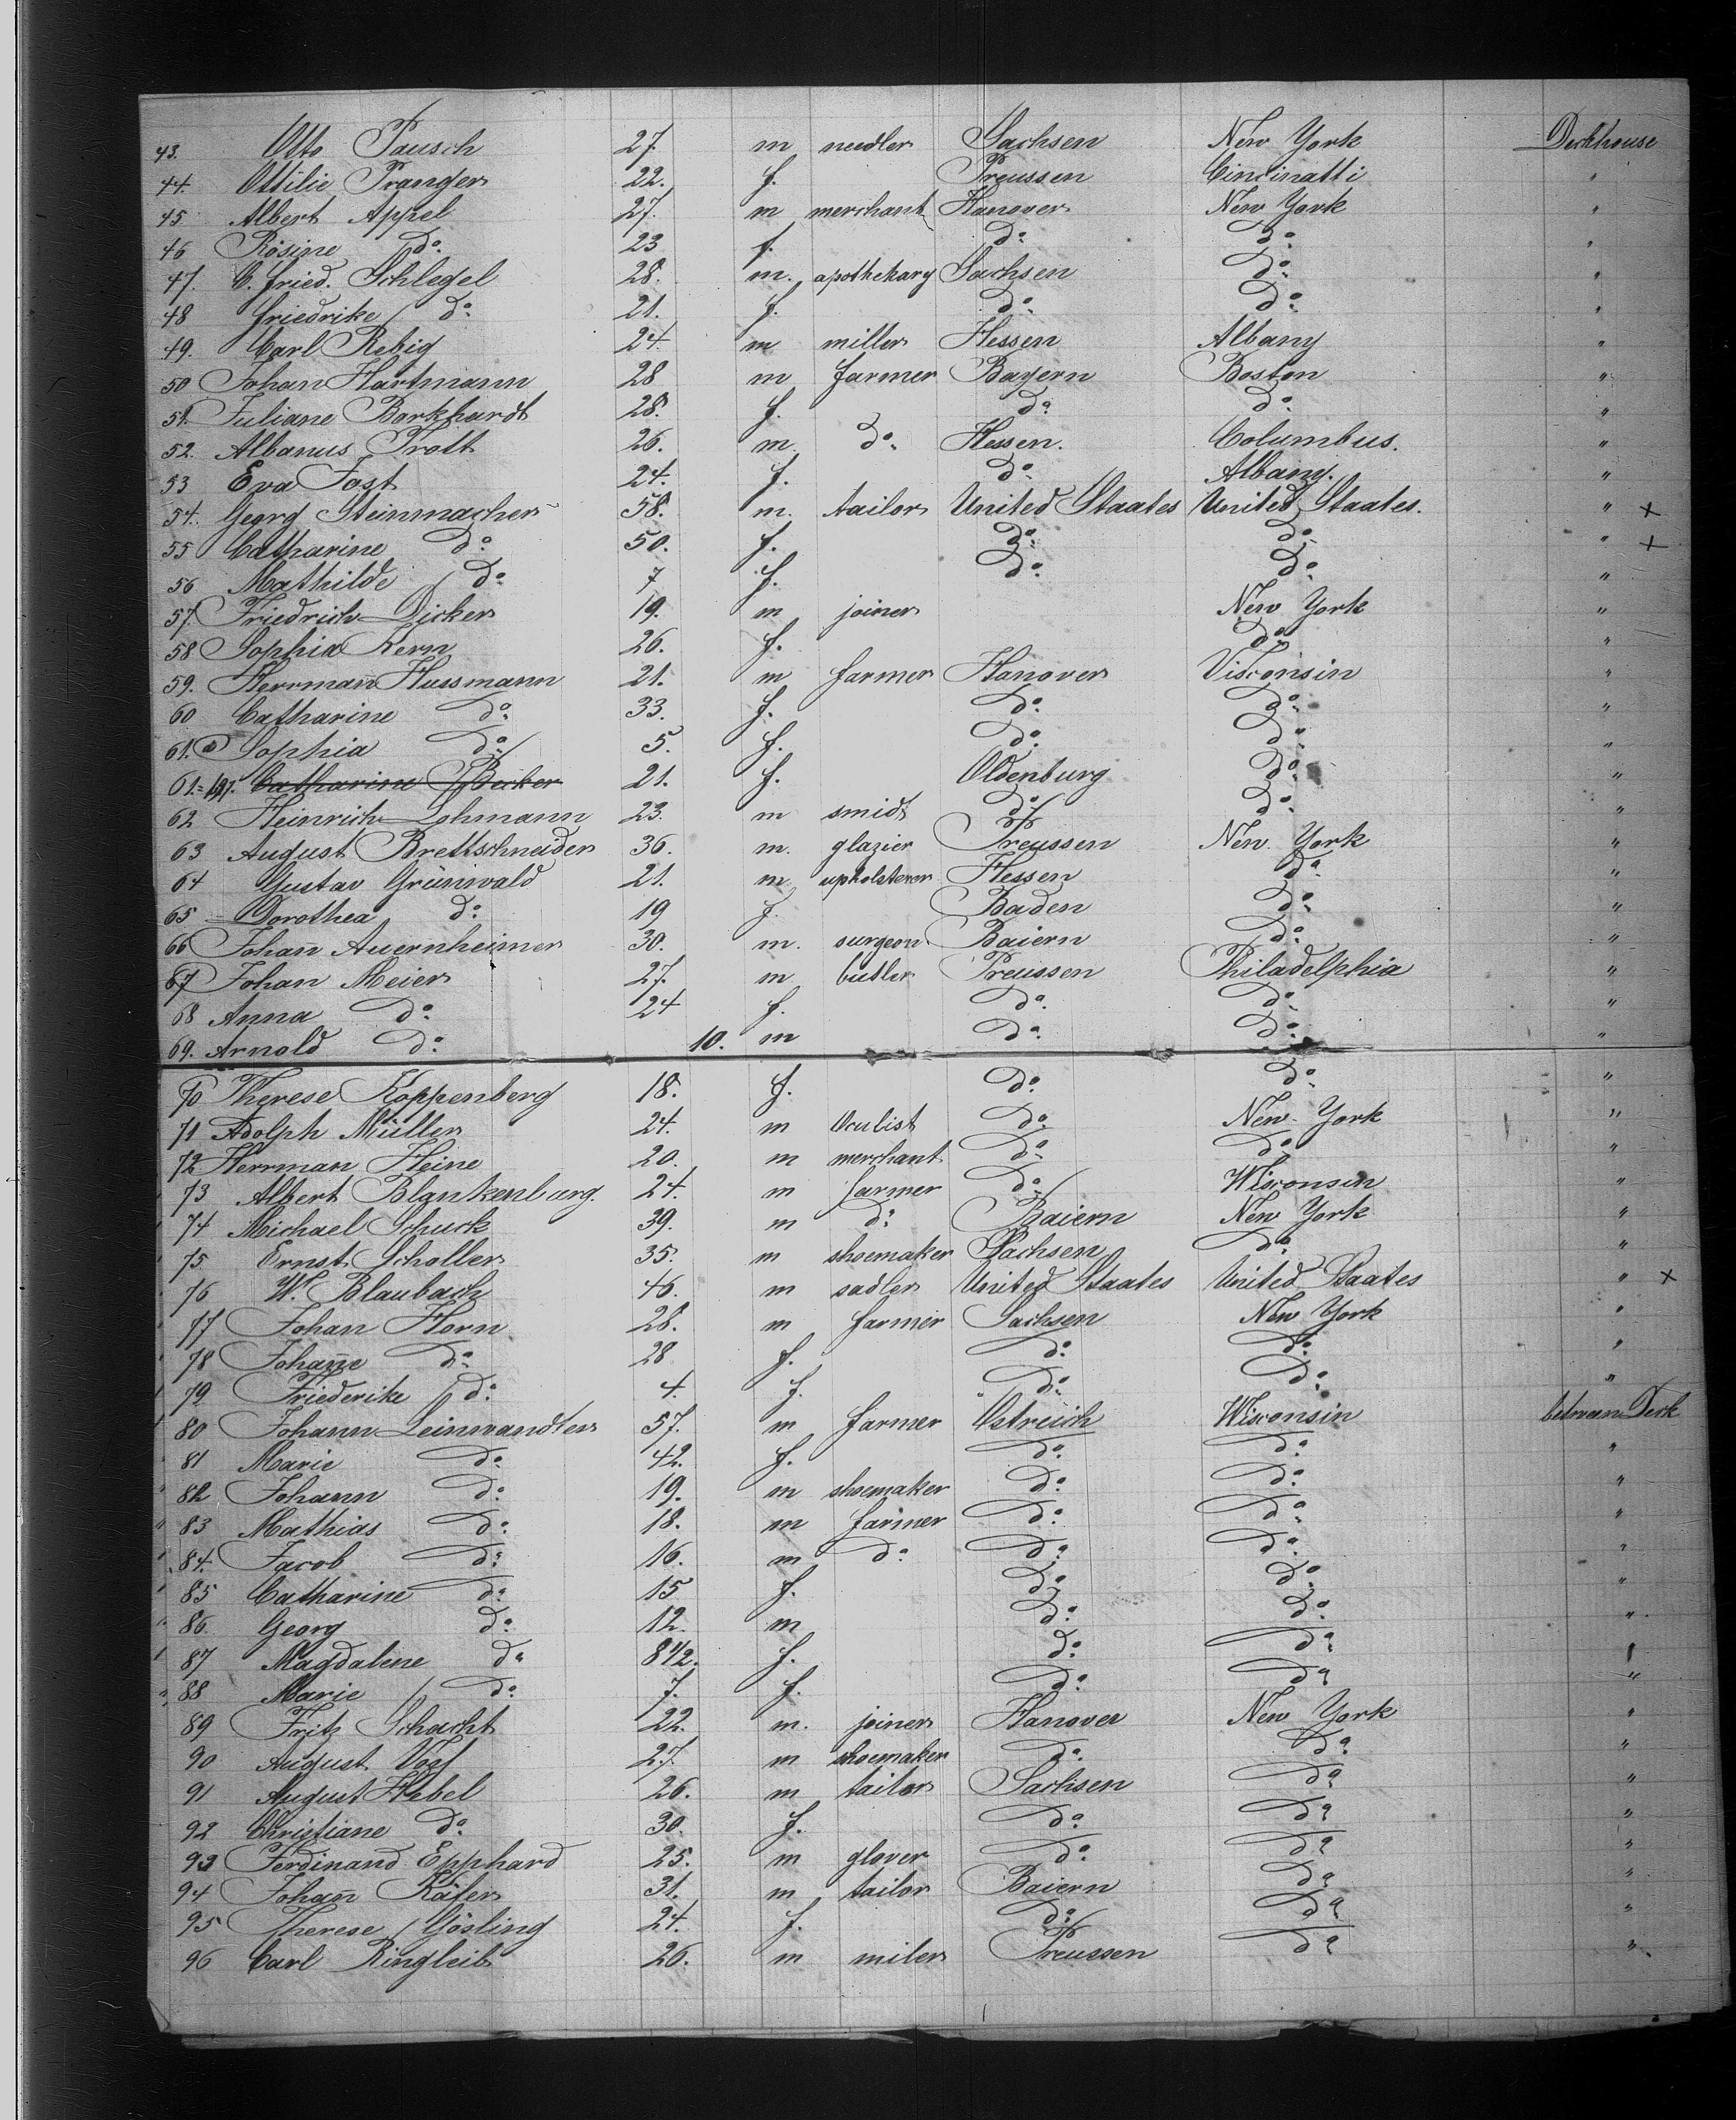 43. Otto Pausch 27. m needler Sachsen New York Deckhouse
44. Ottilie Pranger 22. f. Preussen Cincinatti "
45 Albert Appel 27. m merchant Hanover New York "
46 Rosine do. 23 f. do. do. "
47. C. Fried. Schlegel 28. m. apothekary Sachsen do. "
48 Friedrike do. 21. f. do. do. "
49. Carl Rebig 24. m miller Hessen Albany "
50 Johan Hartmann 28 m farmer Bayern Boston "
51. Juliane Borkhardt 28. f. do. do. "
52. Albanus Trott 26. m. do. Hessen. Columbus. "
53 Eva Jost 24. f. do. Albany. "
54. Georg Steinmacher 58. m. tailor United Staates United Staates. " x
55 Catharine do. 50. f. do. do. " x
56 Mathilde do. 7 f. do. do. "
57. Friedrich Dicker 19. m joiner New York "
58 Sophia Kern 26. f. do. "
59. Herrman Hussmann 21. m farmer Hanover Visconsin "
60 Catharine do. 33. f. do. do. "
61. a Sophia do. 5. f. do. do. "
61.= 197. Catharine Becker 21. f. Oldenburg do. "
62 Heinrich Lohmann 23. m smidt do. do. "
63 August Brettschneider 36. m. glazier Preussen New York "
64 Gustav Grünwald 21. m upholsterer Hessen do. "
65 Dorothea do. 19 f. Baden do. "
66 Johan Auernheimer 30. m. surgeon Baiern do. "
67 Johan Meier 27. m butler Preussen Philadelphia "
68 Anna do. 24 f. do. do. "
69. Arnold do. 10. m do. do. "
70 Therese Koppenberg 18. f. do. do. "
71 Adolph Müller 24. m Oculist do. New York "
72 Herrman Heine 20. m merchant do. do. "
73 Albert Blankenburg. 24. m farmer do. Wisconsin "
74 Michael Schuck 39. m do. Baiern New York "
75 Ernst Scholler 35. m shoemaker Sachsen do. "
76 W. Blaubach 46. m sadler United Staates United Staates " x
77 Johan Horn 28. m farmer Sachsen New York "
78 Johañe do. 28 f. do. do. "
79 Friederike do. 4. f. do. do. "
80 Johann Leinwandter 57. m farmer Ostreich Wisconsin betwean Deck
81 Marie do. 42. f. do. do. "
82 Johann do. 19. m shoemaker do. do. "
83 Mathias do. 18. m farmer do. do. "
84. Jacob do. 16. m do. do. do. "
85 Catharine do. 15 f. do. do. "
86. Georg do. 12. m do. do. "
87 Magdaline do. 8 1/2. f. do. do. "
88 Marie do. 7. f. do. do. "
89 Fritz Schacht 22. m. joiner Hanover New York "
90 August Voss 27. m shoemaker do. do. "
91 August Hebel 26. m tailor Sachsen do. "
92 Christiane do. 30. f. do. do. "
93 Ferdinand Epphard 25. m glover do. do. "
94 Johañ Käfer 31. m tailor Baiern do. "
95 Therese Gösling 24. f. do. do. "
96 Carl Ringleib 26. m miler Preussen do. "